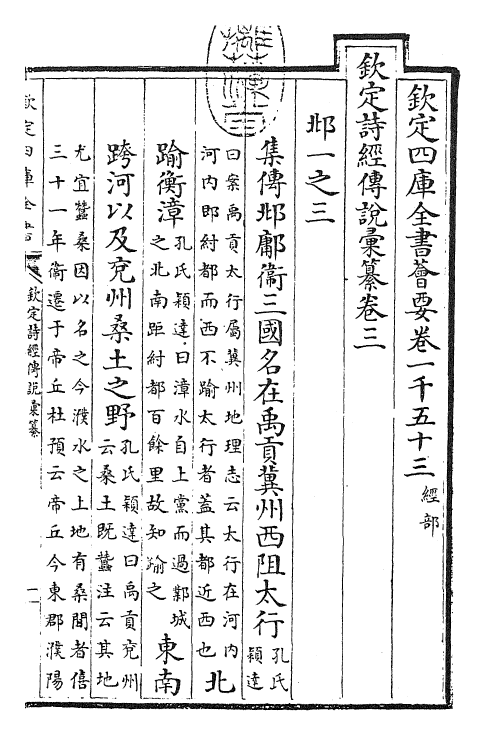 欽定四庫全書薈要卷一千五十三 經部
欽定詩經傳說彙纂卷三
邶一之三
集傳邶鄘衞三國名在禹貢冀州西阻太行 孔氏穎達
曰案禹貢太行屬冀州地理志云太行在河內
河內即紂都而西不踰太行者蓋其都近西也 北
踰衡漳 孔氏穎達曰漳水自上黨而過鄴城
之北南距紂都百餘里故知踰之 東南
跨河以及兖州桑土之野 孔氏穎達曰禹貢兖州
云桑土既蠶注云其地
尤宜蠶桑因以名之今濮水之上地有桑間者僖
三十一年衞遷于帝丘杜預云帝丘今東郡濮陽
欽定四庫全書
欽定詩經傳說彙纂
一